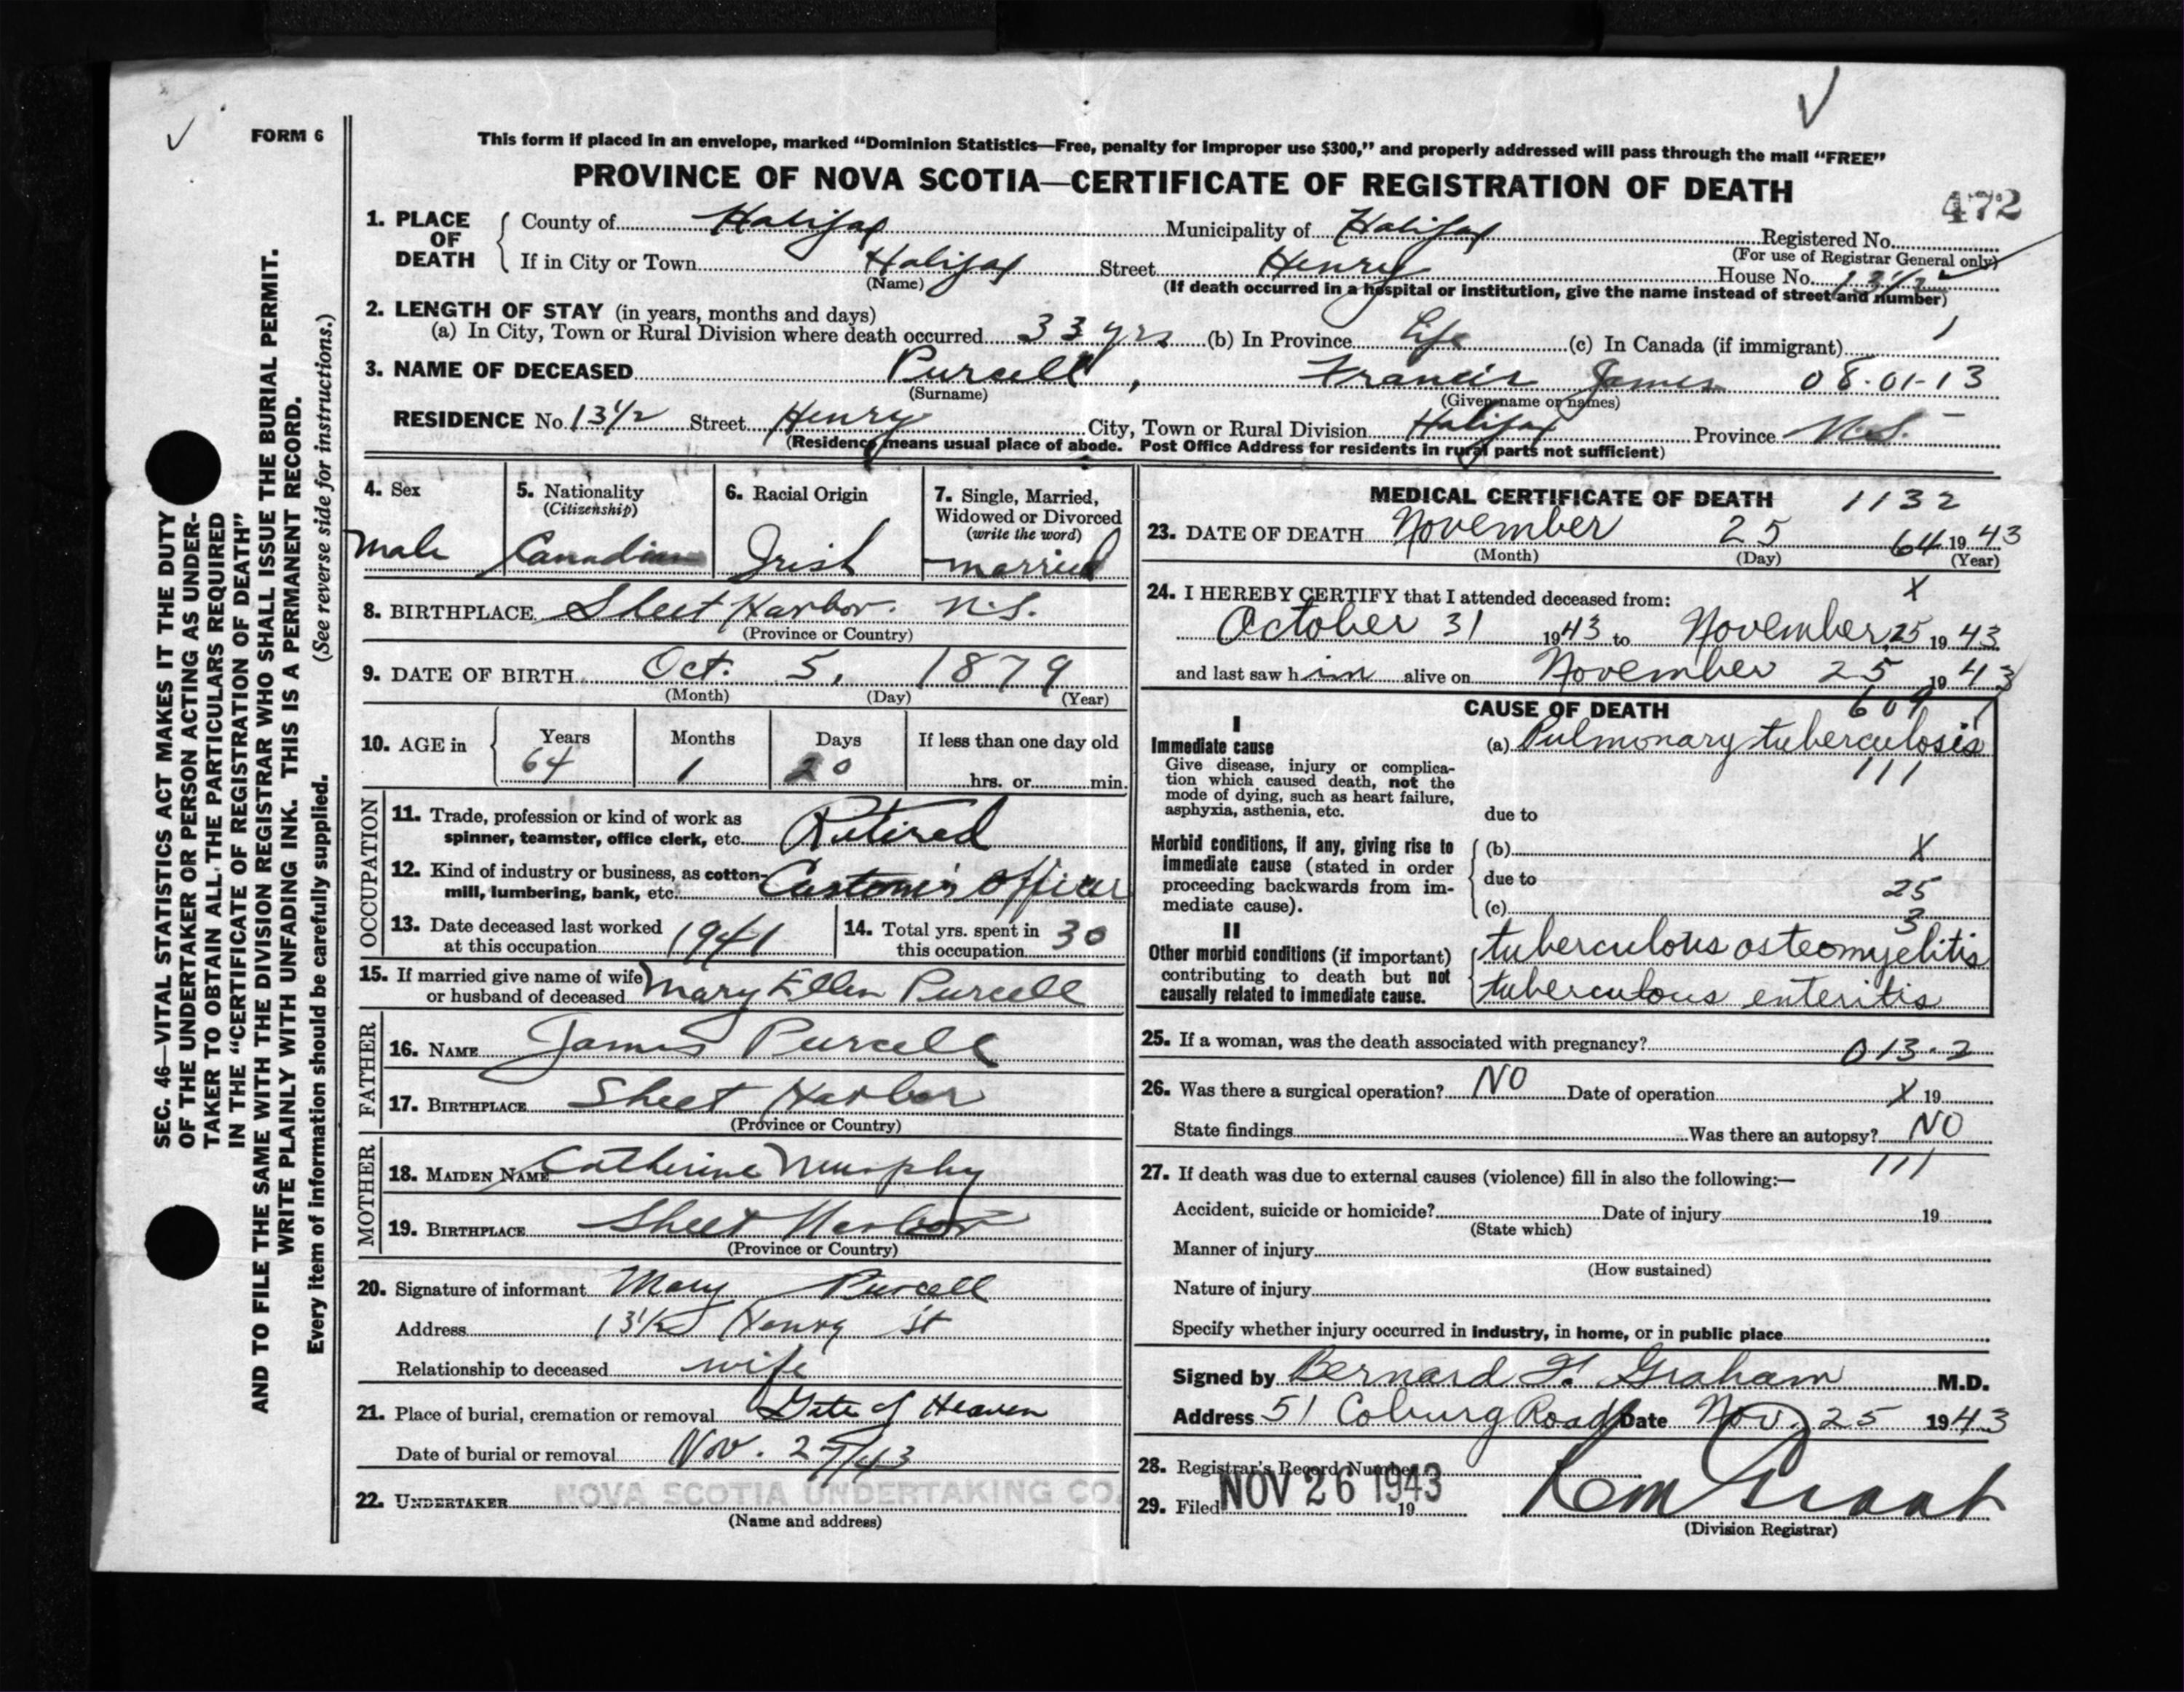 FORM 6
This form if placed in an envelope, marked “Dominion Statistics—Free, penalty for improper use $300,” and properly addressed will pass through the mail “FREE”
PROVINCE OF NOVA SCOTIA—CERTIFICATE OF REGISTRATION OF DEATH
472
1. PLACE OF DEATH
County of Halifax Municipality of Halifax Registered No.
(For use of Registrar General only)
If in City or Town Halifax Street Henry House No. 13 1/2
(Name) (If death occurred in a hospital or institution, give the name instead of street and number)
2. LENGTH OF STAY (in years, months and days)
(a) In City, Town or Rural Division where death occurred 33 yrs (b) In Province Life (c) In Canada (if immigrant)
3. NAME OF DECEASED Purcell, Francis James 08-01-13
(Surname) (Given name or names)
RESIDENCE No. 13 1/2 Street Henry City, Town or Rural Division Halifax Province N.S.
(Residence means usual place of abode. Post Office Address for residents in rural parts not sufficient)
4. Sex
male
5. Nationality
(Citizenship)
Canadian
6. Racial Origin
Irish
7. Single, Married,
Widowed or Divorced
(write the word)
married
8. BIRTHPLACE Sheet Harbor. N.S.
(Province or Country)
9. DATE OF BIRTH Oct. 5, 1879
(Month) (Day) (Year)
10. AGE in Years Months Days If less than one day old
64 1 20 hrs. or min.
OCCUPATION
11. Trade, profession or kind of work as
spinner, teamster, office clerk, etc. Retired
12. Kind of industry or business, as cotton-
mill, lumbering, bank, etc. Custom's Officer
13. Date deceased last worked
at this occupation 1941
14. Total yrs. spent in
this occupation 30
15. If married give name of wife
or husband of deceased Mary Ellen Purcell
FATHER
16. NAME James Purcell
17. BIRTHPLACE Sheet Harbor
(Province or Country)
MOTHER
18. MAIDEN NAME Catherine Murphy
19. BIRTHPLACE Sheet Harbor
(Province or Country)
20. Signature of informant Mary Purcell
Address 13 1/2 Henry St
Relationship to deceased wife
21. Place of burial, cremation or removal Gate of Heaven
Date of burial or removal Nov. 27/43
22. UNDERTAKER NOVA SCOTIA UNDERTAKING CO.
(Name and address)
MEDICAL CERTIFICATE OF DEATH 1132
23. DATE OF DEATH November 25 64 1943
(Month) (Day) (Year)
24. I HEREBY CERTIFY that I attended deceased from: X
October 31 1943 to November 25 1943
and last saw him alive on November 25 1943
CAUSE OF DEATH
I
Immediate cause
Give disease, injury or complica-
tion which caused death, not the
mode of dying, such as heart failure,
asphyxia, asthenia, etc.
(a) Pulmonary tuberculosis
111
due to
Morbid conditions, if any, giving rise to
immediate cause (stated in order
proceeding backwards from im-
mediate cause).
(b) X
due to
25
(c) 3
II
Other morbid conditions (if important)
contributing to death but not
causally related to immediate cause.
tuberculous osteomyelitis
tuberculous enteritis
25. If a woman, was the death associated with pregnancy? 013-2
26. Was there a surgical operation? NO Date of operation X 19
State findings Was there an autopsy? NO
111
27. If death was due to external causes (violence) fill in also the following:—
Accident, suicide or homicide? Date of injury 19
(State which)
Manner of injury
(How sustained)
Nature of injury
Specify whether injury occurred in industry, in home, or in public place
Signed by Bernard F. Graham M.D.
Address 51 Coburg Road Date Nov. 25 1943
28. Registrar's Record Number
29. Filed NOV 26 1943 19
(Division Registrar)
SEC. 46—VITAL STATISTICS ACT MAKES IT THE DUTY
OF THE UNDERTAKER OR PERSON ACTING AS UNDER-
TAKER TO OBTAIN ALL THE PARTICULARS REQUIRED
IN THE “CERTIFICATE OF REGISTRATION OF DEATH”
AND TO FILE THE SAME WITH THE DIVISION REGISTRAR WHO SHALL ISSUE THE BURIAL PERMIT.
WRITE PLAINLY WITH UNFADING INK. THIS IS A PERMANENT RECORD.
Every item of information should be carefully supplied. (See reverse side for instructions.)